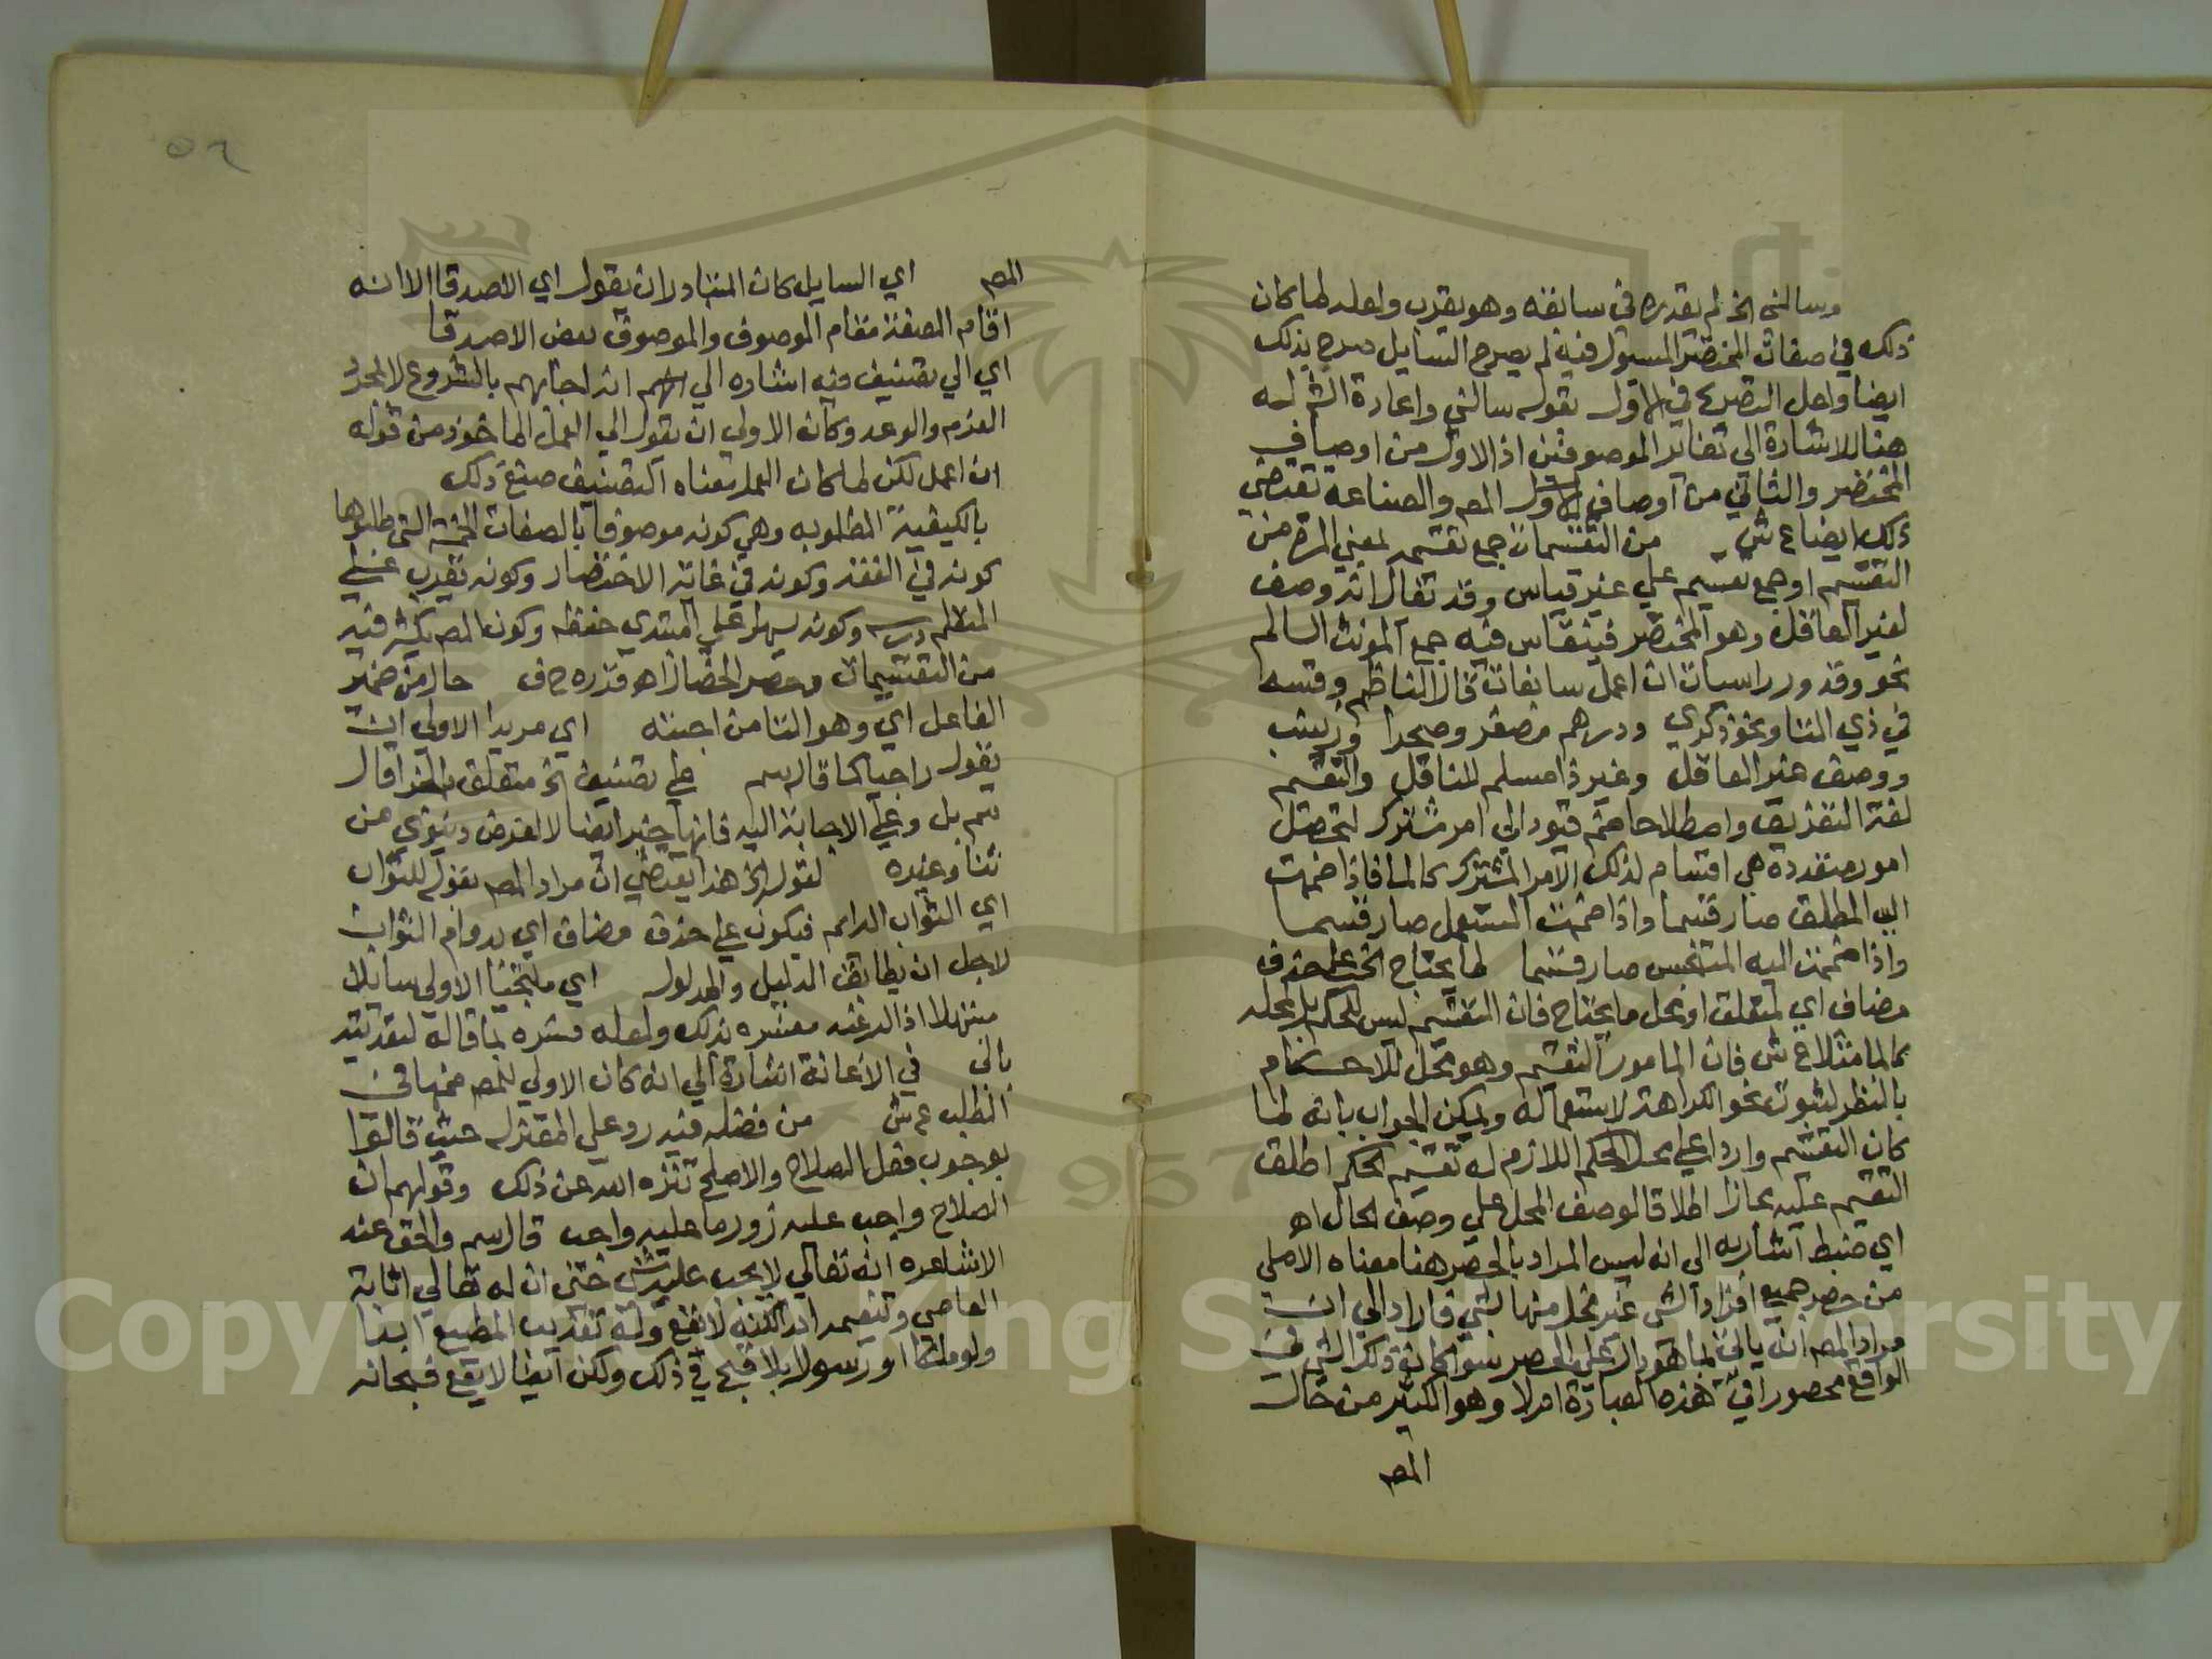 وسالني الخ لم يقدره في سابقه وهو يقرب ولعله لما كان
ذلك في صفات المختصر المسوول فيه لم يصرح السايل صرح بذلك
ايضا ولعل التصريح في الاول بقوله سالني واعادة الش له
هنا للاشارة الي تغاير الموصوفين اذ الاول من اوصاف
المختصر والثاني من اوصاف الاول المص والصناعة تقتضي
ذلك ايضا ع ش من التقسيمات جمع تقسيمه لمعني المرة من
التقسيم او جمع تقسيم علي غير قياس وقد يقال انه وصف
لغير العاقل وهو المختصر فينقاس فيه جمع المونث السالم
نحو وقدور راسيات ان اعمل سابغات قال الناظم وقسه
في ذي التا ونحو ذكري ودرهم مصغر وصحرا وزينب
ووصف غير العاقل وغير ذا مسلم للناقل والتقسيم
لغة التفريق واصطلاحا ضم قيود الي امر مشترك لتحصل
امور متعددة هي اقسام لذلك الامر المشترك كالما فاذا ضممت
اليه المطلق صار قسما واذا ضممت المستعمل صار قسما
واذا ضممت اليه المتنجس صار قسما لما يحتاج الخ علي حذف
مضاف اي لمتعلق او محل ما يحتاج فان التقسيم ليس للحكم بل لمحله
كالما مثلا ع ش فان المامور التقسيم وهو محل للاحكام
بالنظر لثبوت نحو الكراهة لاستعماله ويمكن الجواب بانه لما
كان التقسيم واردا علي محل الحكم اللازم له تقسيم الحكم اطلق
التقسيم عليه مجازا اطلاقا لوصف المحل علي وصف الحال اه
اي ضبط اشار به الي انه ليس المراد بالحصر هنا معناه الاصلي
من حصر جميع افراد الشي غير مخل منها بشي فاراد الي ان
مراد المص انه ياتي بما هو دال علي الحصر سوا كان ذلك الشي في
الواقع محصورا في هذه العبارة ام لا وهو الكثير من حال
المص
٥٦
المص اي السايل كان المتبادر ان يقول اي الاصدقا الا انه
اقام الصفة مقام الموصوف والموصوف بعض الاصدقا
اي الي تصنيف فيه اشاره الي انه اجابهم بالشروع لا لمجرد
العزم والوعد وكان الاولي ان يقول الي العمل الماخوذ من قوله
ان اعمل لكن لما كان العمل معناه التصنيف صنع ذلك
بالكيفية المطلوبه وهي كونه موصوفا بالصفات الخمسة التي طلبوها
كونه في الفقه وكونه في غاية الاختصار وكونه يقرب علي
المتعلم درسه وكونه يسهل علي المبتدي حفظه وكون المص يكثر فيه
من التقسيمات وحصر الخصال اه قرره ح ف حال من ضمير
الفاعل اي وهو التا من اجبته اي مريدا الاولي ان
يقول راجيا كما قاله سم علي تصنيف الخ متعلق بالجزا قال
سم بل وعلي الاجابة اليه فانها خير ايضا لا لغرض دنيوي من
ثنا وغيره لقوله الخ هذا يقتضي ان مراد المص بقوله للثواب
اي الثواب الدايم فيكون علي حذف مضاف اي بدوام الثواب
لاجل ان يطابق الدليل والمدلول اي ملتجئا الاولي سايلا
مبتهلا اذ الرغبة مفسره بذلك ولعله فسره بما قاله لتعديته
بالي في الاعانة اشارة الي انه كان الاولي للمص في
الطلب ع ش من فضله فيه رد علي المعتزله حيث قالوا
بوجوب فعل الصلاح والاصلح تنزه الله عن ذلك وقولهم ان
الصلاح واجب عليه زور ما عليه واجب قال سم والحق عند
الاشاعره انه تعالي لا يجب عليه شي حتي ان له تعالي اثابة
العاصي وتنعيمه ابدا لكنه لا يقع وله تعذيب المطيع ابدا
ولو ملكا او رسولا بلا قبح في ذلك ولكن ايضا لا يقع فسبحانه